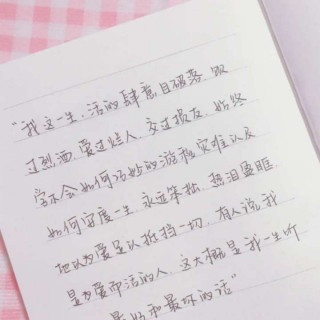 “我这一生，活的肆意且破落 饮
过烈酒，爱过烂人，交过损友，始终
学不会如何巧妙的游移灾难以及
如何安度一生，永远笨拙，热泪盈眶
他以为爱足以抵挡一切，有人说我
是为爱而活的人，这大概是我一生听
最好和最坏的话”